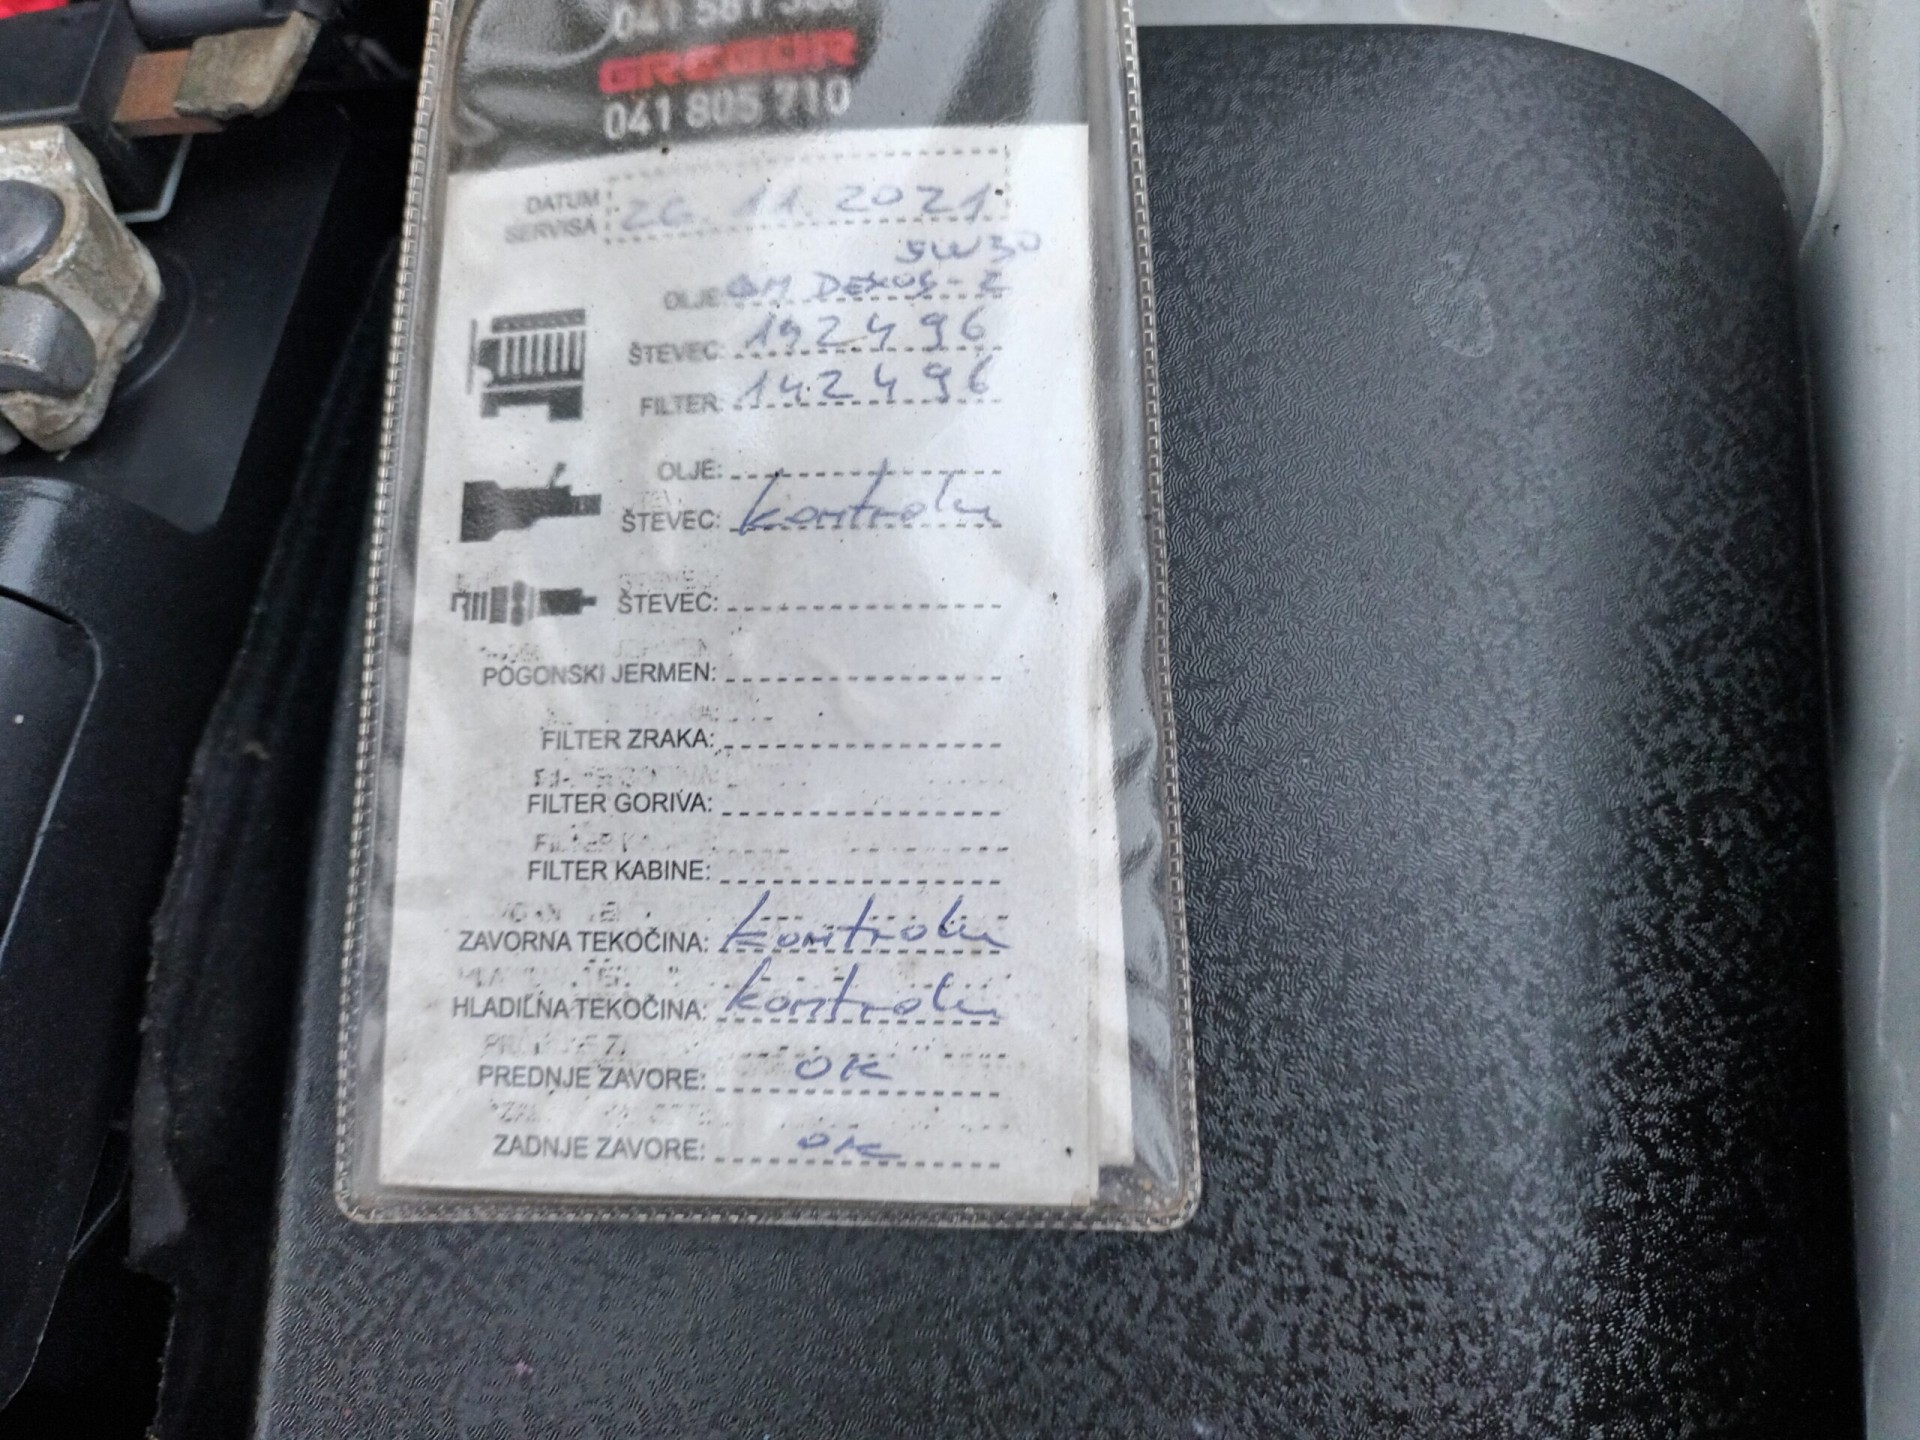 041 581
GREGOR
041 805 710
DATUM
SERVISA 26. 11. 2021
5W30
OLJE: GM DEXOS-2
ŠTEVEC: 142496
FILTER: 142496
OLJE:
ŠTEVEC: kontrola
ŠTEVEC:
POGONSKI JERMEN:
FILTER ZRAKA:
FILTER GORIVA:
FILTER KABINE:
ZAVORNA TEKOČINA: kontrola
HLADILNA TEKOČINA: kontrola
PREDNJE ZAVORE: OK
ZADNJE ZAVORE: OK